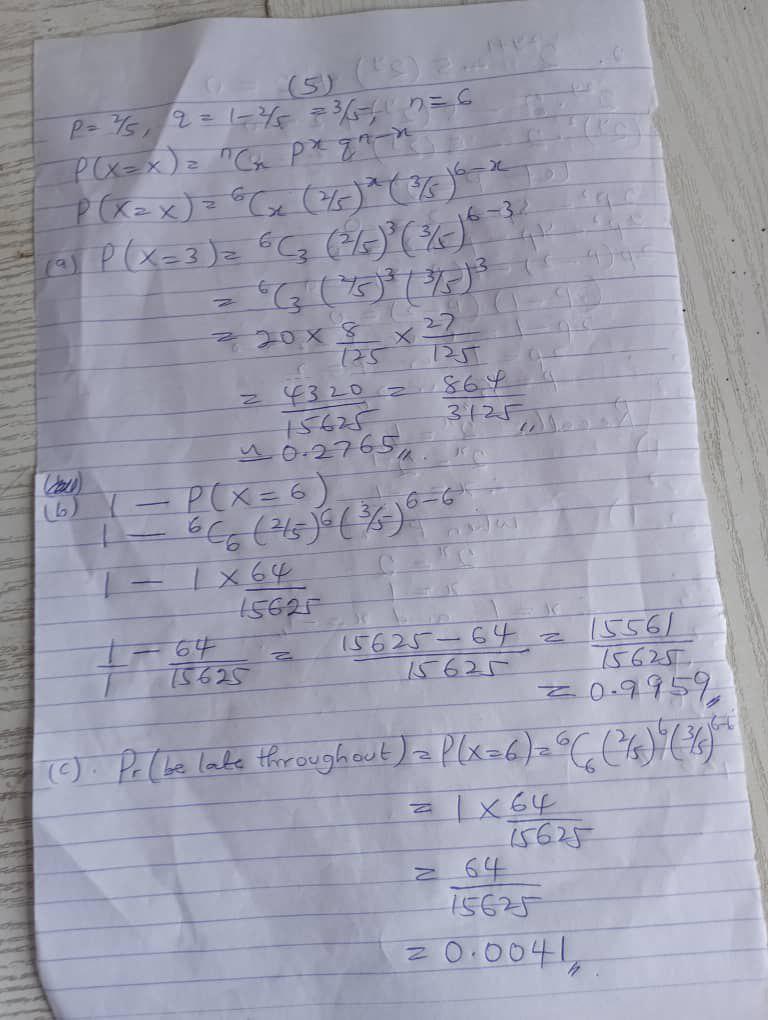 (5)
P = 2/5, q = 1 - 2/5 = 3/5, n = 6
P(X=x) = ⁿCₓ pˣ qⁿ⁻ˣ
P(X=x) = ⁶Cₓ (2/5)ˣ (3/5)⁶⁻ˣ
(a) P(X=3) = ⁶C₃ (2/5)³ (3/5)⁶⁻³
= ⁶C₃ (2/5)³ (3/5)³
= 20 × 8/125 × 27/125
= 4320/15625 = 864/3125
≃ 0.2765
(b) 1 - P(X=6)
1 - ⁶C₆ (2/5)⁶ (3/5)⁶⁻⁶
1 - 1 × 64/15625
1/1 - 64/15625 = 15625-64/15625 = 15561/15625
= 0.9959
(c). Pr (be late throughout) = P(X=6) = ⁶C₆ (2/5)⁶ (3/5)⁶⁻⁶
= 1 × 64/15625
= 64/15625
= 0.0041